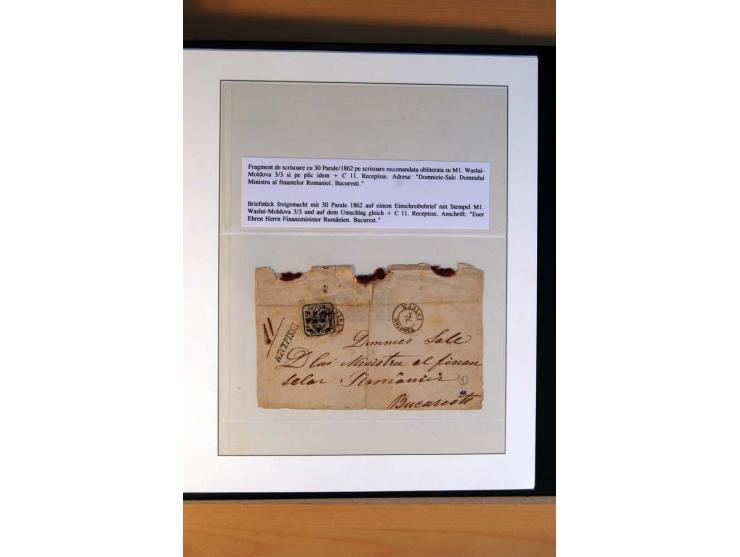 Fragment de scrisoare cu 30 Parale/1862 pe scrisoare recomandata obliterata su M1. Waslui-
Moldova 3/3 si pe plic idem + C 11. Recepisse. Adresa: "Domnieie-Sale Domnului
Ministru al finantelor Romaniei. Bucuresti."
Briefstück freigemacht mit 30 Parale 1862 auf einem Einschreibebrief mit Stempel M1.
Waslui-Moldova 3/3 und auf dem Umschlag gleich + C 11. Recepisse. Anschrift: "Euer
Ehren Herrn Finanzminister Rumänien. Bucurest."
RECEPISSE
WASLUI
MOLDOVA
Domniei Sale
Dlui Ministru al finan
selor Romăniei
Bucuresti